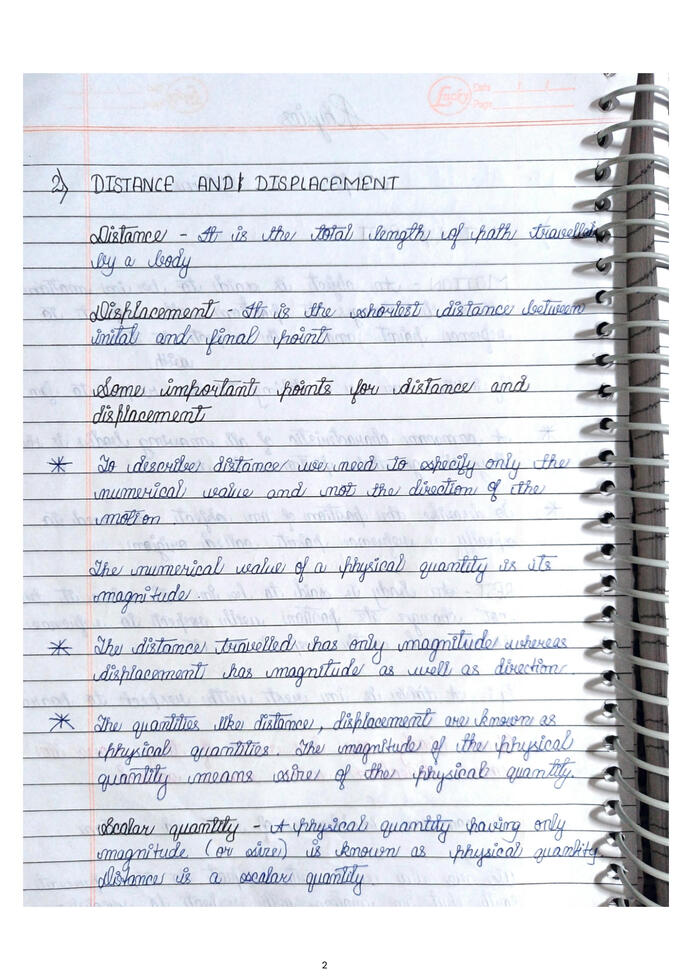 Lucky Date
Page
2) DISTANCE AND DISPLACEMENT
Distance - It is the total length of path travelled
by a body
Displacement - It is the shortest distance between
inital and final point
Some important points for distance and
displacement
* To describe distance we need to specify only the
numerical value and not the direction of the
motion
The numerical value of a physical quantity is its
magnitude.
* The distance travelled has only magnitude whereas
displacement has magnitude as well as direction.
* The quantities like distance, displacement are known as
physical quantities. The magnitude of the physical
quantity means size of the physical quantity.
Scalar quantity - A physical quantity having only
magnitude (or size) is known as physical quantity.
Distance is a scalar quantity
2